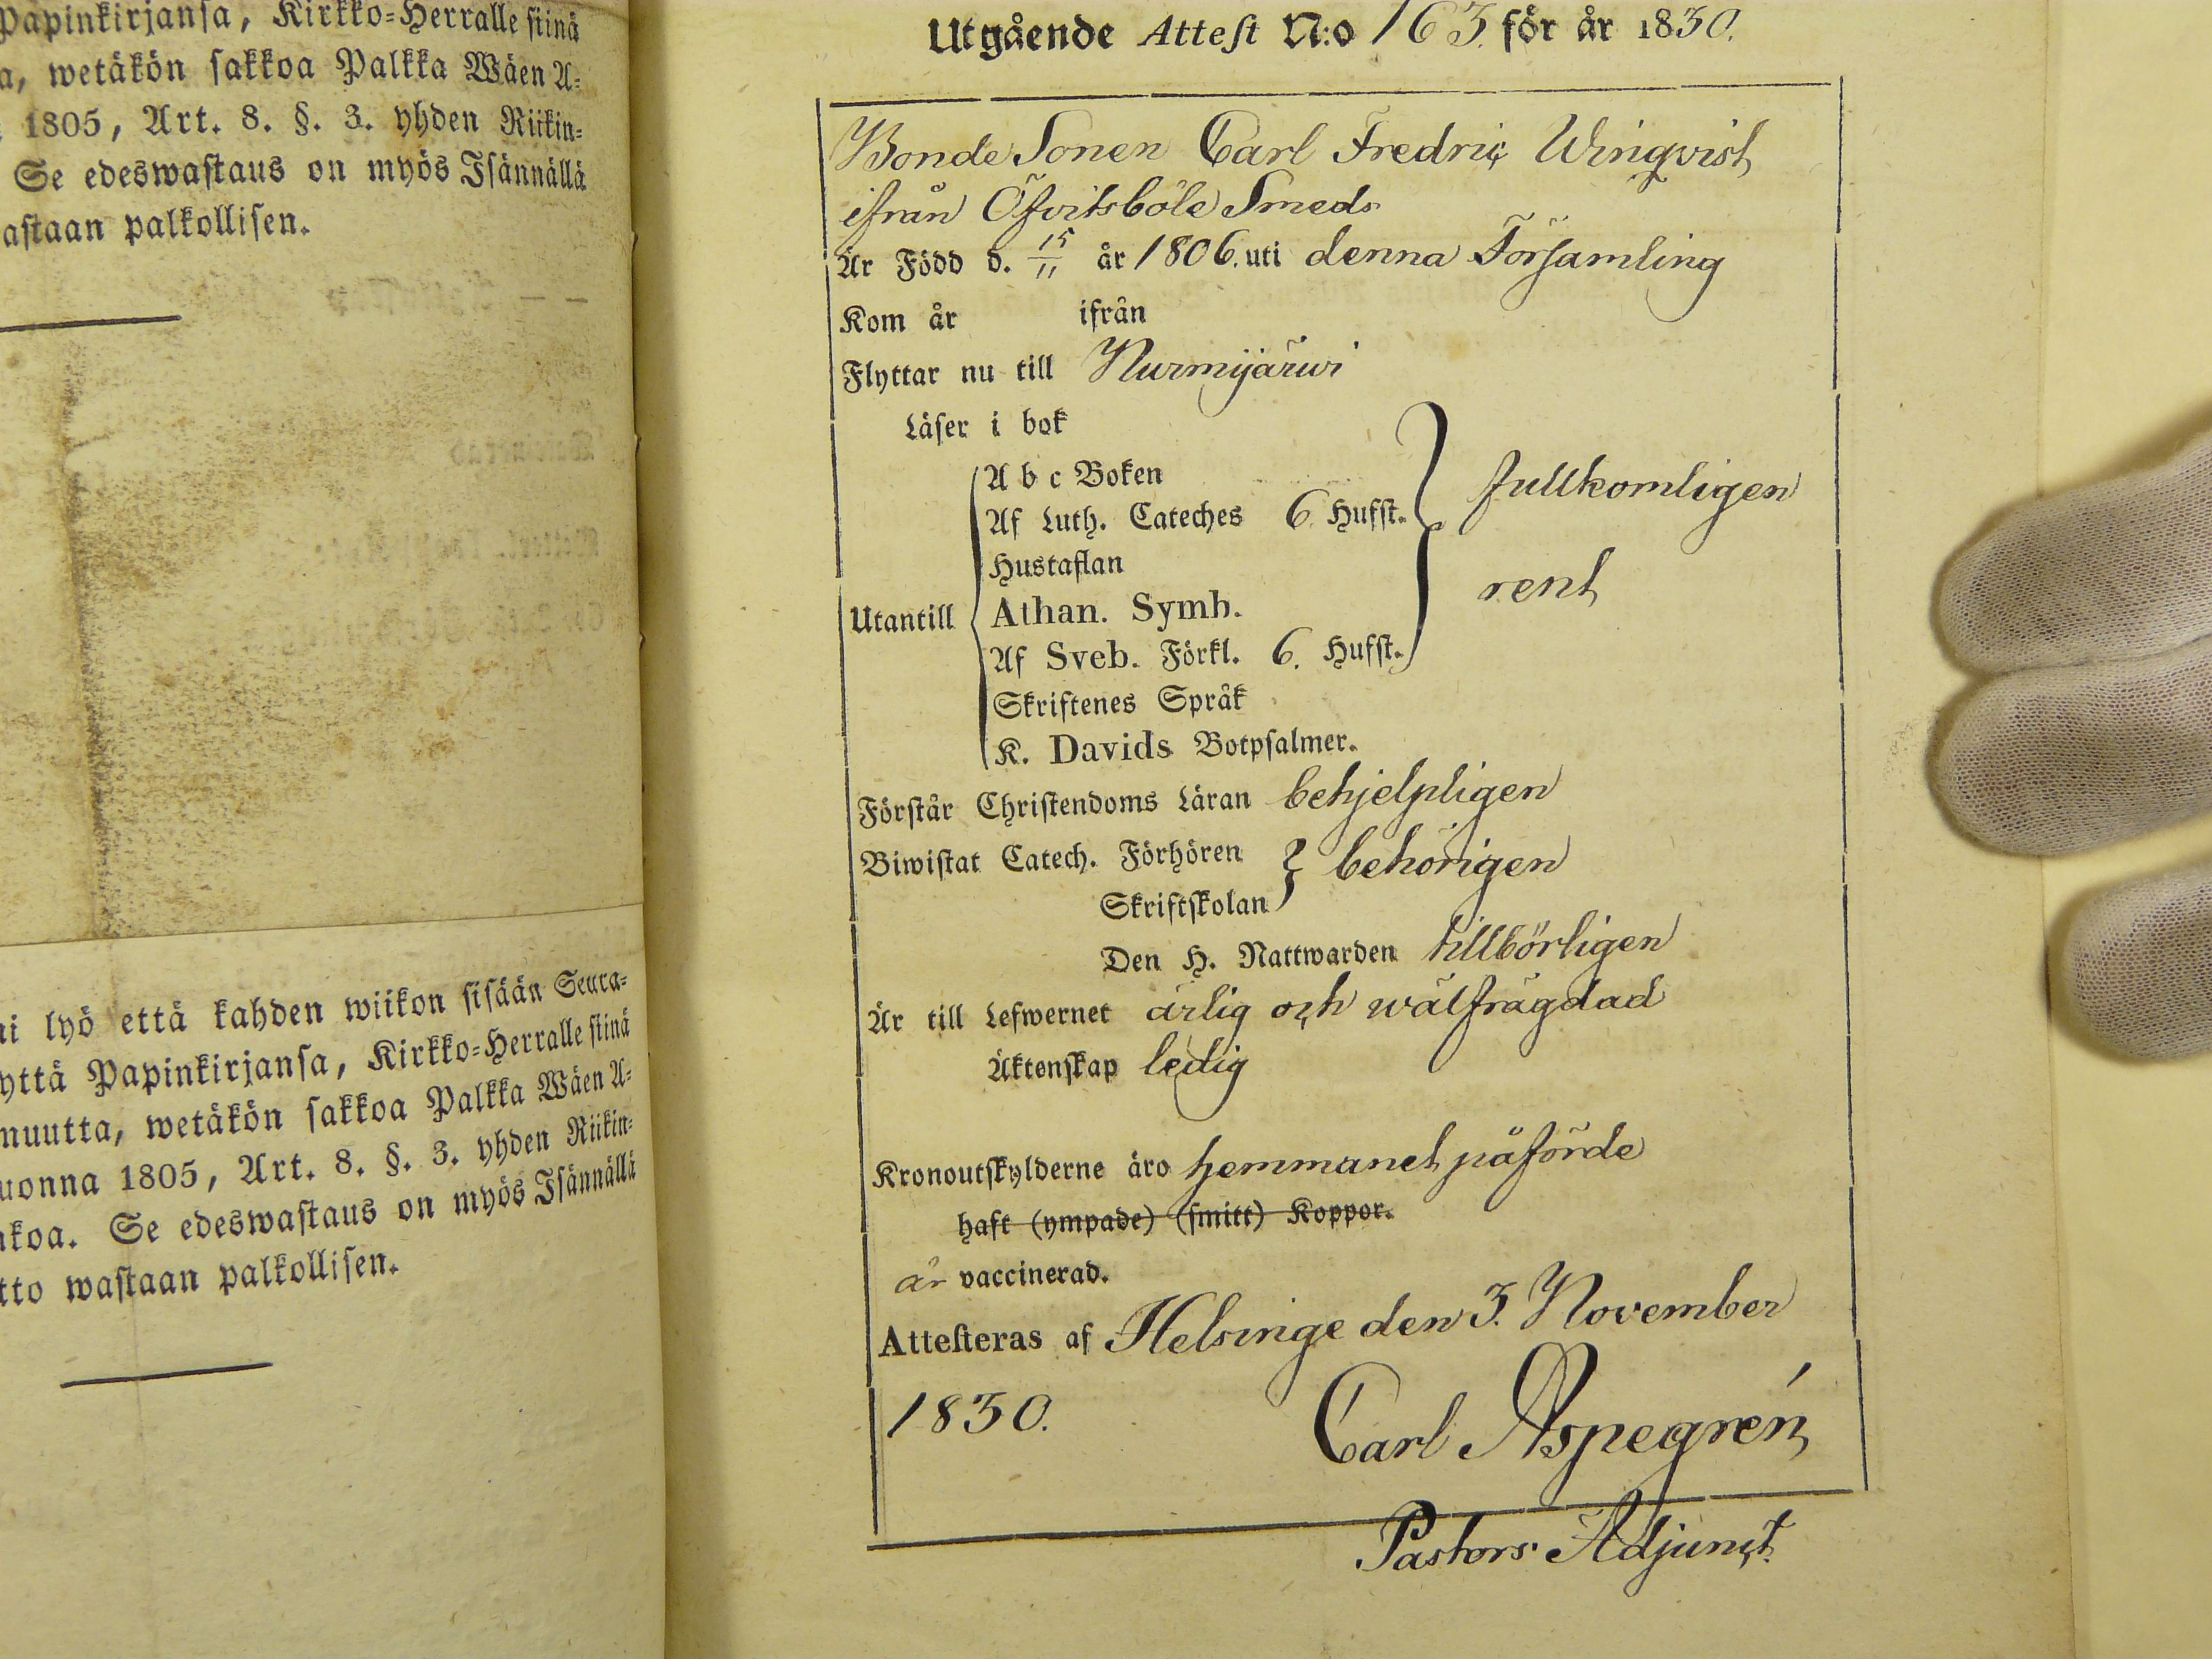 Papinkirjanſa, Kirkko-Herralle ſtinä
a, wetäkön ſakkoa Palkka Wäen A-
1805, Art. 8. §. 3. yhden Riikin-
Se edeswaſtaus on myös Iſännällä
aſtaan palkolliſen.
ni lyö että kahden wiikon ſiſään Seura-
yttä Papinkirjanſa, Kirkko-Herralle ſtinä
muutta, wetäkön ſakkoa Palkka Wäen A-
uonna 1805, Art. 8. §. 3. yhden Riikin-
nkoa. Se edeswaſtaus on myös Iſännällä
tto waſtaan palkolliſen.
Utgående Atteſt N:o 163. för år 1830.
Bonde Sonen Carl Fredric Winqvist
ifrån Öfvitsböle Smeds
Är Född d. 15/11 år 1806. uti denna Församling
Kom år ifrån
Flyttar nu till Nurmijärwi
Läſer i bok
A b c Boken
Af Luth. Cateches 6. Hufſt. fullkomligen
Hustaflan
Utantill Athan. Symb. rent
Af Sveb. Förkl. 6. Hufſt.
Skriftenes Språk
K. Davids Botpſalmer.
Förſtår Chriſtendoms Läran behjelpligen
Biwiſtat Catech. Förhören behörigen
Skriftſkolan
Den H. Nattwarden tillbörligen
Är till Lefwernet ärlig och wälfrägdad
Äktenſkap ledig
Kronoutſkylderne äro hemmanet påförde
haft (ympade) (ſmitt) Koppor.
är vaccinerad.
Atteſteras af Helsinge den 3. November
1830. Carl Aspegrén
Pastors Adjunct.